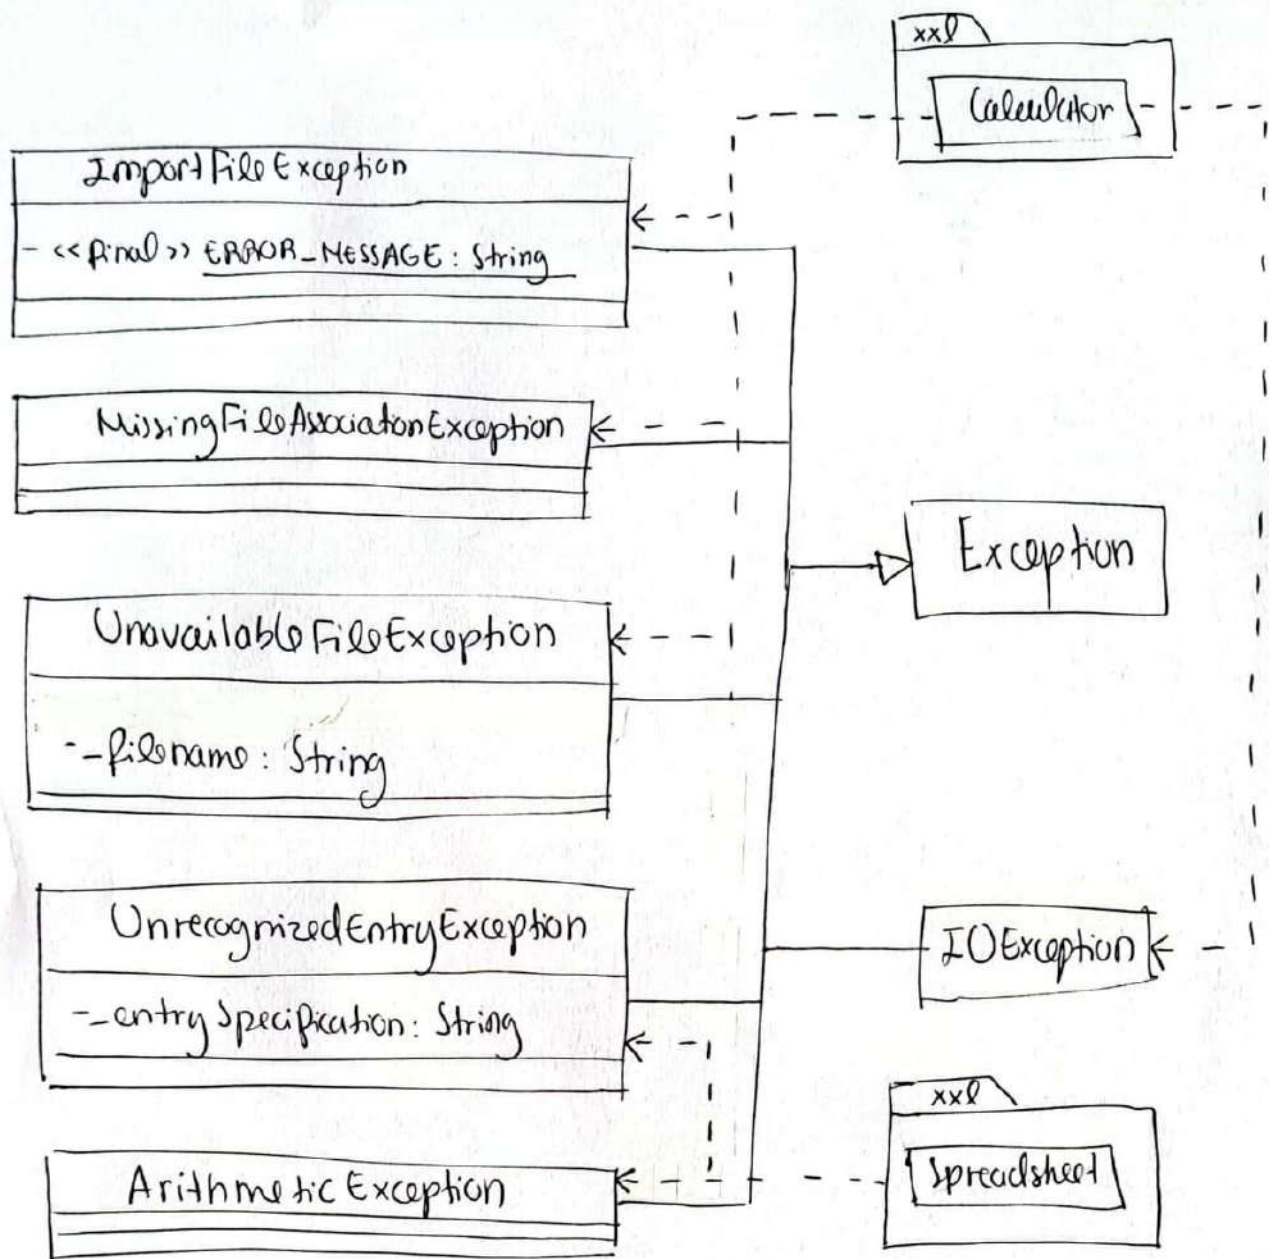 xxl
Calculator
ImportFileException
- <<final>> ERROR_MESSAGE: String
MissingFileAssociatonException
Exception
UnavailableFileException
-_filename: String
UnrecognizedEntryException
-_entrySpecification: String
IOException
xxl
Spreadsheet
ArithmeticException